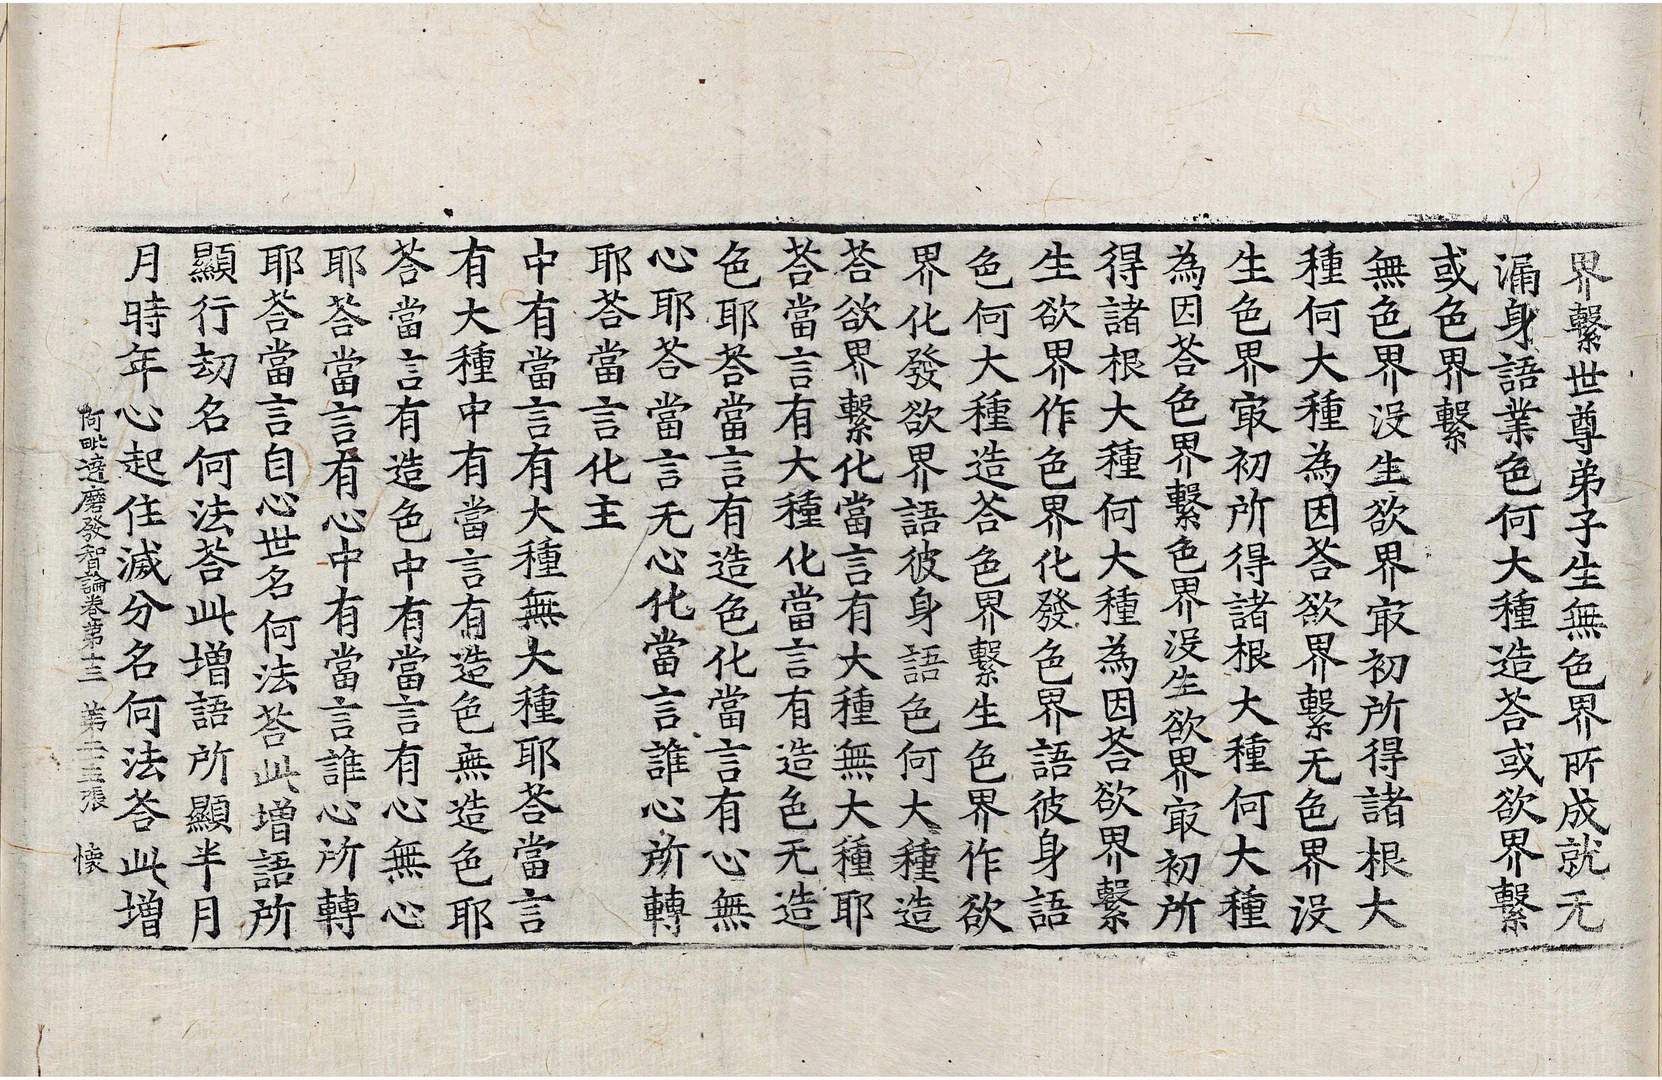 界繫世尊弟子生無色界所成就无
漏身語業色何大種造荅或欲界繫
或色界繫
無色界没生欲界㝡初所得諸根大
種何大種為因荅欲界繫无色界没
生色界㝡初所得諸根大種何大種
為因荅色界繫色界没生欲界㝡初所
得諸根大種何大種為因荅欲界繫
生欲界作色界化發色界語彼身語
色何大種造荅色界繫生色界作欲
界化發欲界語彼身語色何大種造
荅欲界繫化當言有大種無大種耶
荅當言有大種化當言有造色无造
色耶荅當言有造色化當言有心無
心耶荅當言无心化當言誰心所轉
耶荅當言化主
中有當言有大種無大種耶荅當言
有大種中有當言有造色無造色耶
荅當言有造色中有當言有心無心
耶荅當言有心中有當言誰心所轉
耶荅當言自心世名何法荅此增語所
顯行劫名何法荅此增語所顯半月
月時年心起住滅分名何法荅此增
阿毗達磨發智論卷第十三 第二十五張 懷